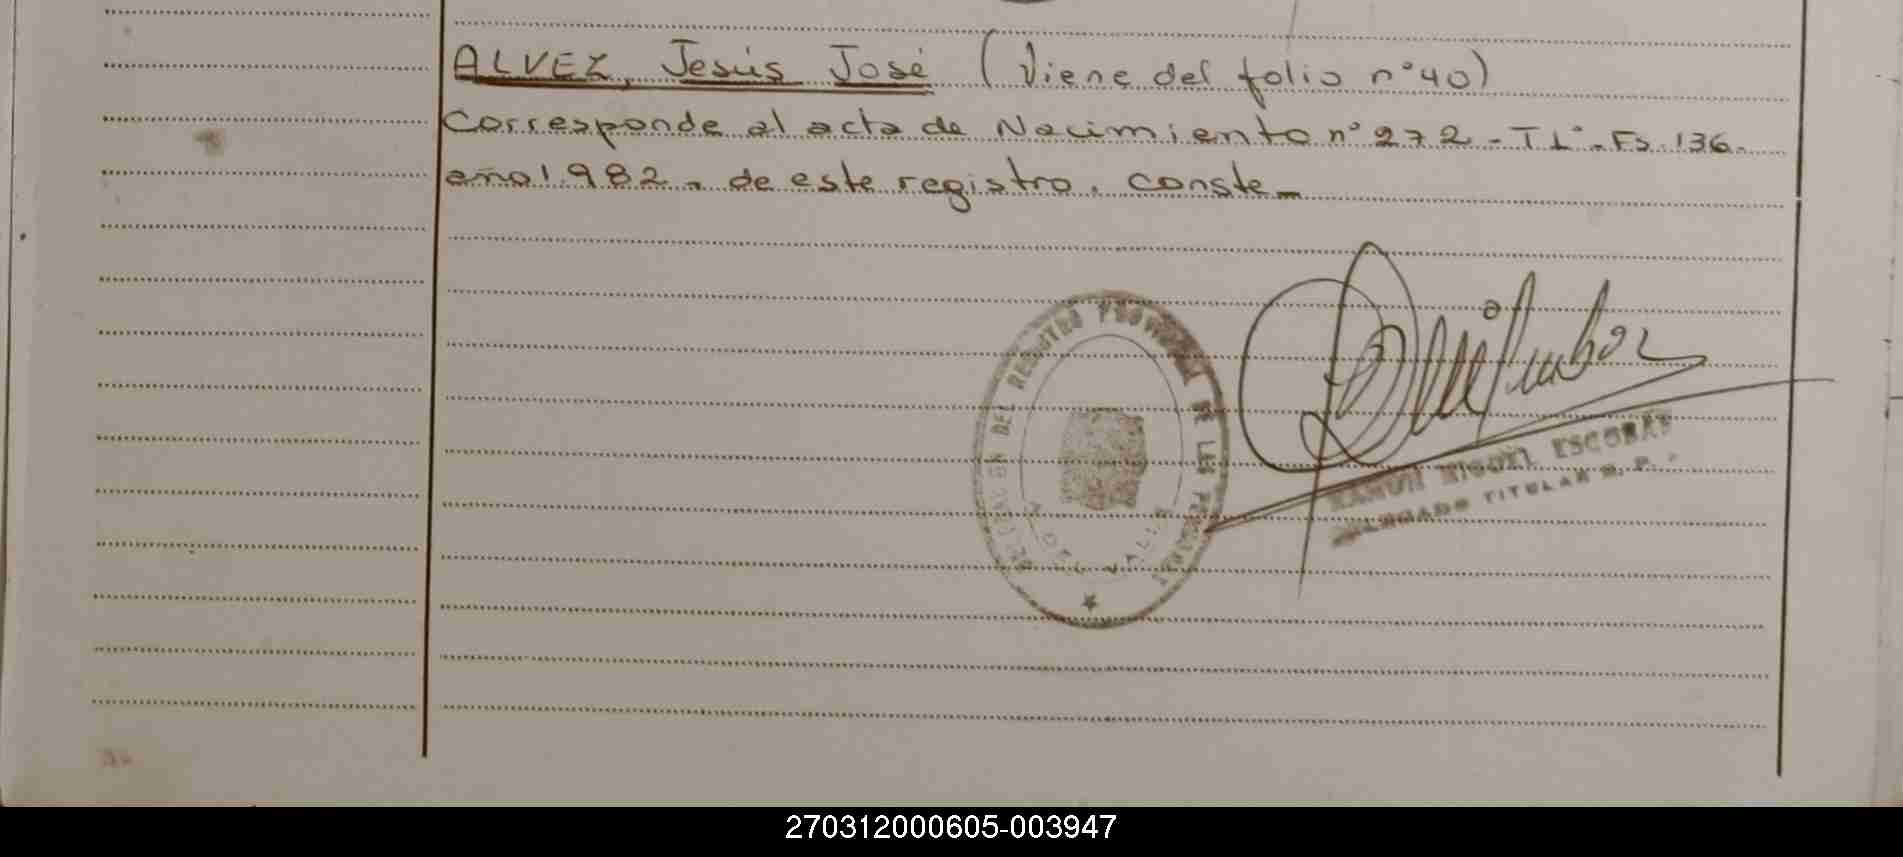 ALVEZ, Jesús José (Viene del folio n° 40)
Corresponde al acta de Nacimiento n° 272 - T 1° - Fs. 136.
año 1.982 - de este registro. Conste -
DEL REGISTRO PROVINCIAL DE LAS PERSONAS
DEL VALLE
RAMON MIGUEL ESCOBAR
DELEGADO TITULAR R. P.
270312000605-003947